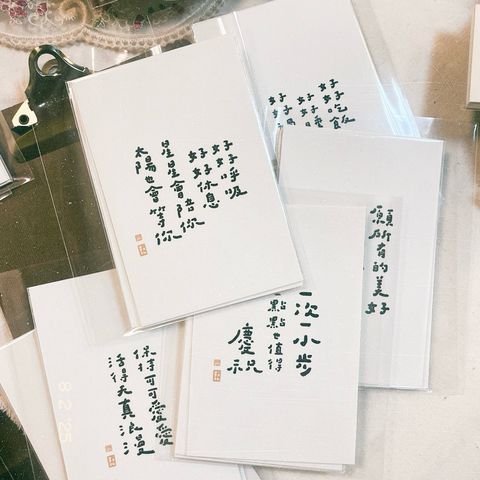 好好呼吸
好好休息
星星會陪你
太陽也會等你
好好吃飯
好好
好好
願所有的美好
一次一小步
一點點也值得
慶祝
保持可可愛愛
活得天真浪漫
8 2 '25